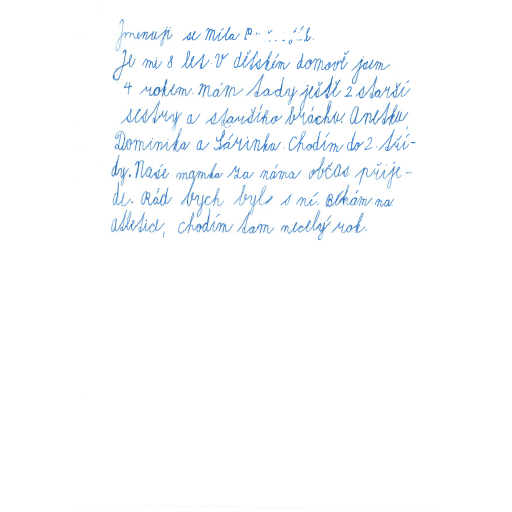 Jmenuji se Míla
Je mi 8 let. V dětském domově jsem
4 rokem. mám tady ještě 2 starší
sestry a staršího bráchu. Anetku,
Dominika a Sárinku. Chodím do 2. tří-
dy. Naše mamka za náma občas přije-
de. Rád bych byl s ní. Běhám na
atletice, chodím tam necelý rok.